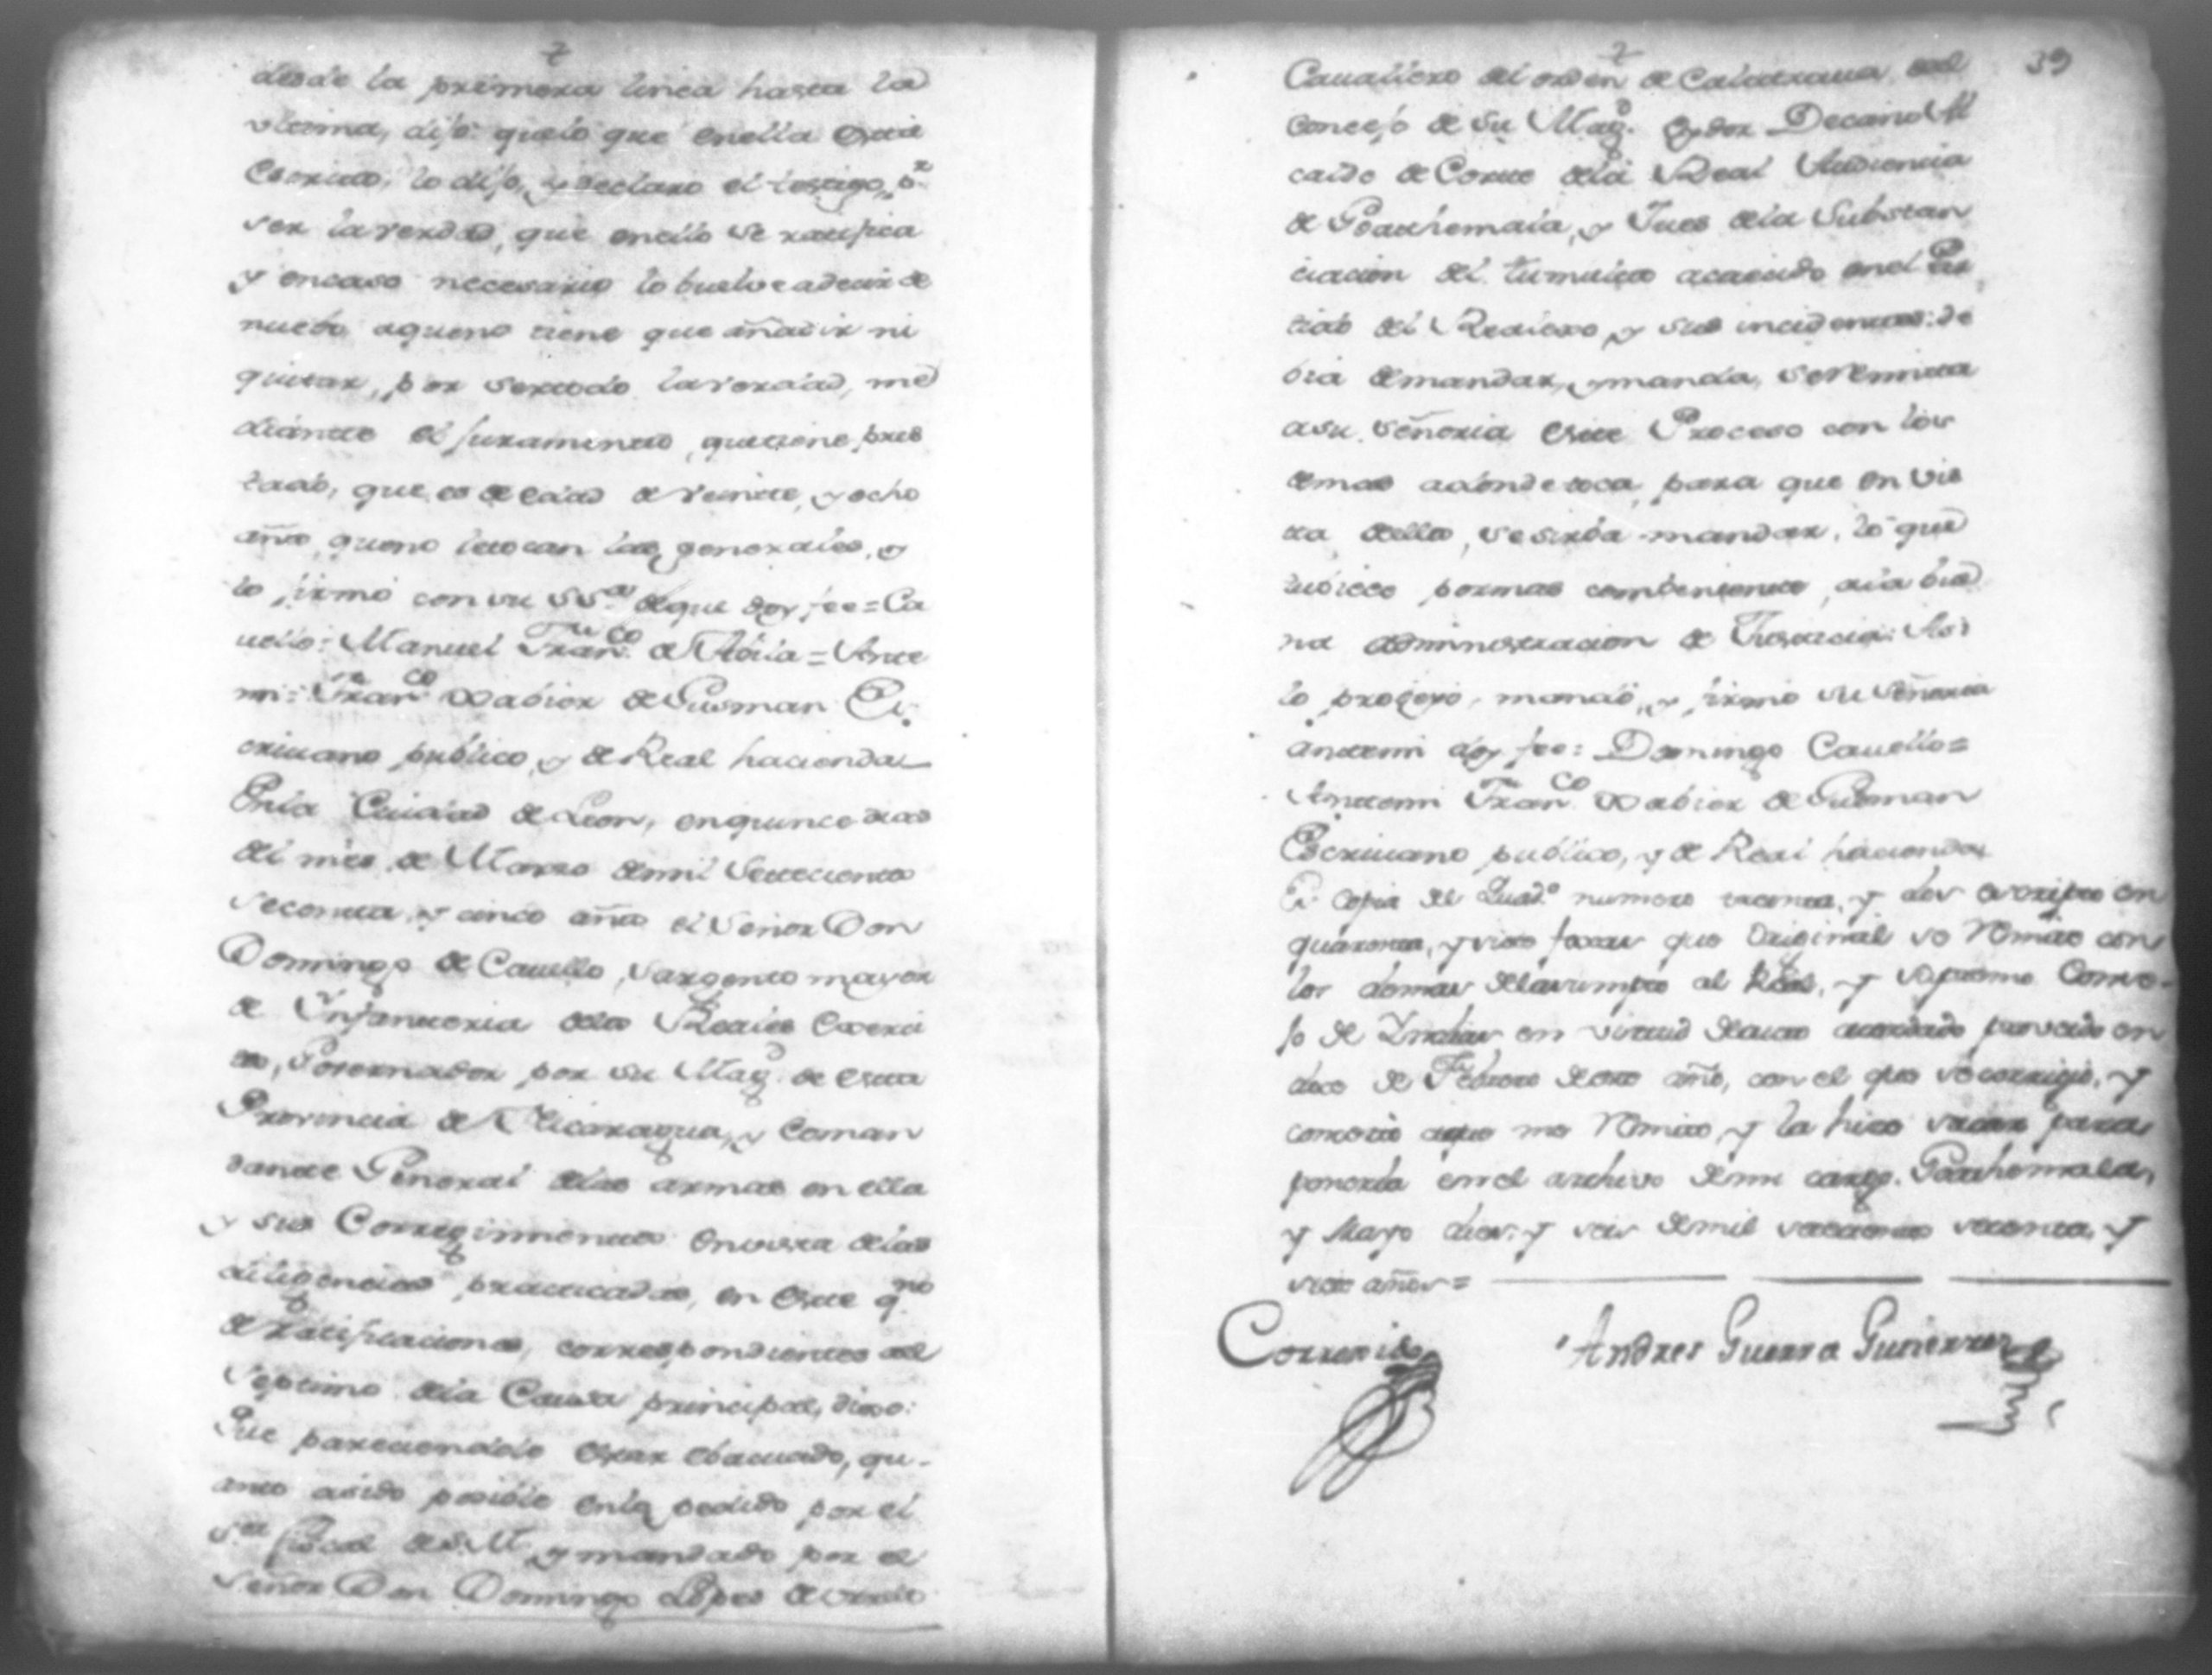 desde la primera linea hasta la
vltima, dijo: quelo que enella esta
escrito, lo dijo, y declaro el testigo, pr
ser laverdad, que enello se ratifica
y encaso necesario lo buelve adecir de
nuebo aqueno tiene que añadir ni
quitar, por sertodo laverdad, me
diante el juramento, quetiene pres
tado, que es de edad de veinte, y ocho
año, queno letocan las generales, y
lo firmó con su Ssa. deque doy fee = Ca
uello: Manuel Franco. de Abila = Ante
mi: Franco. Xabier de Gusman Es
criuano publico, y de Real hacienda
Enla Ciudad de Leon, enquince dias
del mes de Marzo demil Setecientos
secenta, y cinco años el Señor Don
Domingo de Cauello, Sargento mayor
de Ynfanteria delos Reales Exerci
tos, Governador por su Magd. de esta
Provincia de Nicaragua, y Coman
dante General delas armas en ella
y sus Corregimientos: Envista delas
diligencias practicadas, en este qno
de ratificaciones, correspondientes al
Septimo dela Causa principal, dixo:
Que pareciendole estar ebacuado, qu-
anto asido posible enlo pedido por el
Sor. fiscal de S. M. y mandado por el
Señor Don Domingo Lopes de Urrelo
39
Cauallero del orden de Calatraua del
concejo de su Magd. Oydor Decano Al
calde de Corte dela Real Audiencia
de Goathemala, y Jues dela Substan
ciacion del tumulto acaecido enel Par
tido del Realexo, y sus incidentes: de
bia demandar, y manda, se remita
asu señoria este Proceso con los
demas adonde toca, para que en vis
ta dellos, se sirba mandar, lo que
tubiere pormas combeniente, ala bue
na administracion de Justicia: Asi
lo probeyo, mandó, y firmó su señoria
antemi doy fee: Domingo Cauello =
Antemi Franco. Xabier de Gusman
Escriuano publico, y de Real hacienda
Es copia del Quadno. numero treinta, y dos escripto en
quarenta, y siete foxas que Original se remitio con
los demas delasumpto al Rl., y supremo Conse-
jo de Yndias en virtud deauto acordado proveido en
dies de Febrero deeste año, con el que secorrigio, y
concerto aque me remito, y la hice sacar para
ponerla enel archivo demi cargo. Goathemala,
y Mayo dies, y seis demil setecientos secenta, y
siete años =
Correxido
Andres Guerra Gutierrez